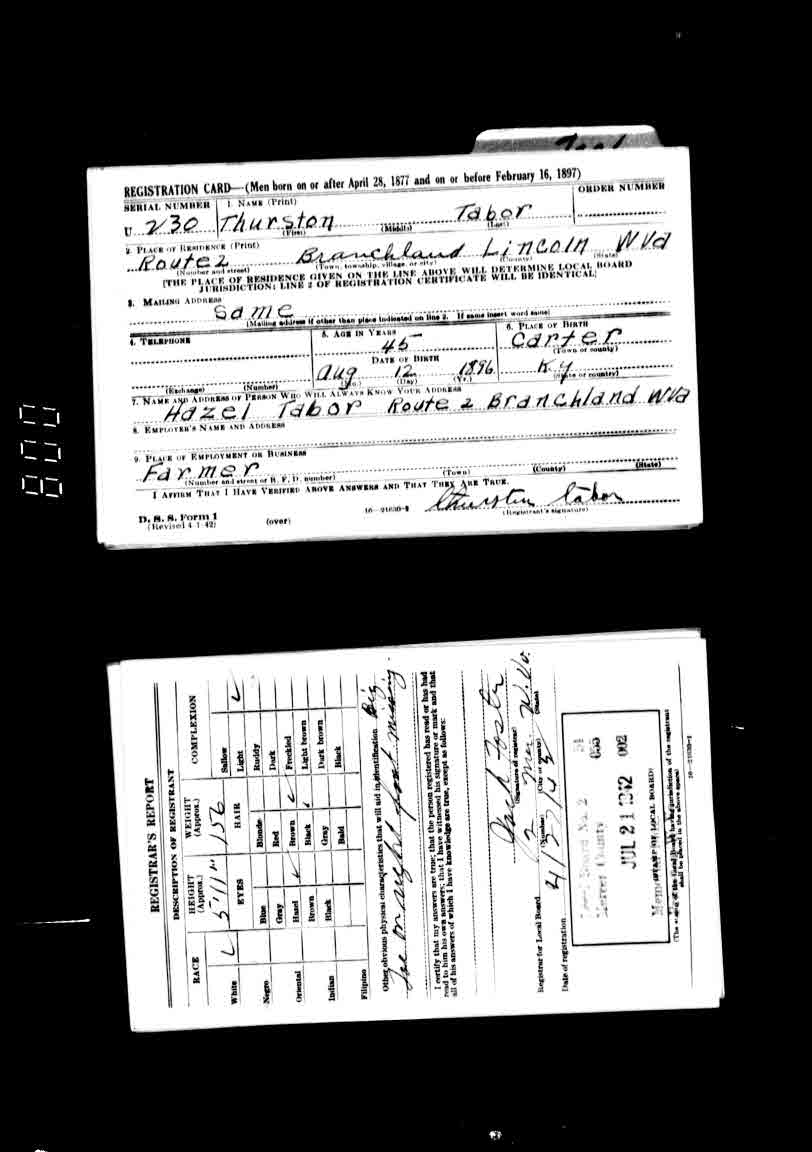 REGISTRATION CARD—(Men born on or after April 28, 1877 and on or before February 16, 1897)
SERIAL NUMBER 1. NAME (Print) ORDER NUMBER
U 230 Thurston Tabor
(First) (Middle) (Last)
2. PLACE OF RESIDENCE (Print)
Route 2 Branchland Lincoln W Va
(Number and street) (Town, township, village, or city) (County) (State)
[THE PLACE OF RESIDENCE GIVEN ON THE LINE ABOVE WILL DETERMINE LOCAL BOARD
JURISDICTION; LINE 2 OF REGISTRATION CERTIFICATE WILL BE IDENTICAL]
3. MAILING ADDRESS
Same
(Mailing address if other than place indicated on line 2. If same insert word same)
4. TELEPHONE 5. AGE IN YEARS 6. PLACE OF BIRTH
45 Carter
DATE OF BIRTH (Town or county)
Aug 12 1896 Ky
(Exchange) (Number) (Mo.) (Day) (Yr.) (State or country)
7. NAME AND ADDRESS OF PERSON WHO WILL ALWAYS KNOW YOUR ADDRESS
Hazel Tabor Route 2 Branchland W Va
8. EMPLOYER'S NAME AND ADDRESS
9. PLACE OF EMPLOYMENT OR BUSINESS
Farmer
(Number and street or R. F. D. number) (Town) (County) (State)
I AFFIRM THAT I HAVE VERIFIED ABOVE ANSWERS AND THAT THEY ARE TRUE.
Thurston Tabor
D. S. S. Form 1 16—21630-2 (Registrant's signature)
(Revised 4-1-42) (over)
REGISTRAR'S REPORT
DESCRIPTION OF REGISTRANT
RACE HEIGHT (Approx.) WEIGHT (Approx.) COMPLEXION
White 5'11" 156 Sallow
EYES HAIR Light
Negro Blue Blonde Ruddy
Gray Red Dark
Oriental Hazel Brown Freckled
Brown Black Light brown
Indian Black Gray Dark brown
Filipino Bald Black
Other obvious physical characteristics that will aid in identification Big
Toe on right foot missing
I certify that my answers are true; that the person registered has read or has had
read to him his own answers; that I have witnessed his signature or mark and that
all of his answers of which I have knowledge are true, except as follows:
Foster
(Signature of registrar)
Registrar for Local Board 2 W. Va.
(Number) (City or county) (State)
Date of registration 4/27/42
Local Board No. 2
Mercer County
JUL 21 1942 002
(STAMP OF LOCAL BOARD)
(The stamp of the Local Board having jurisdiction of the registrant
shall be placed in the above space)